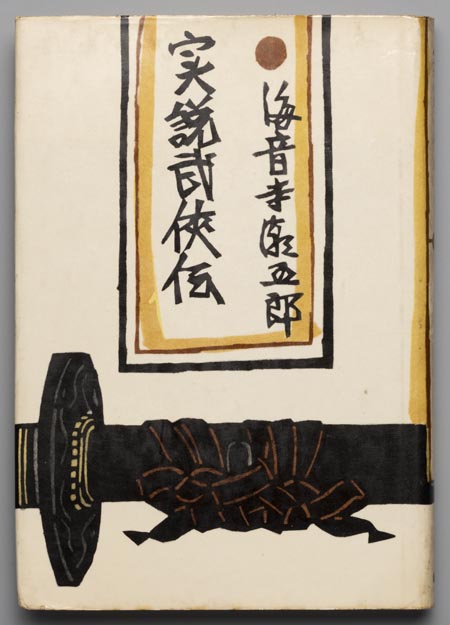 海音寺潮五郎
実説武俠伝